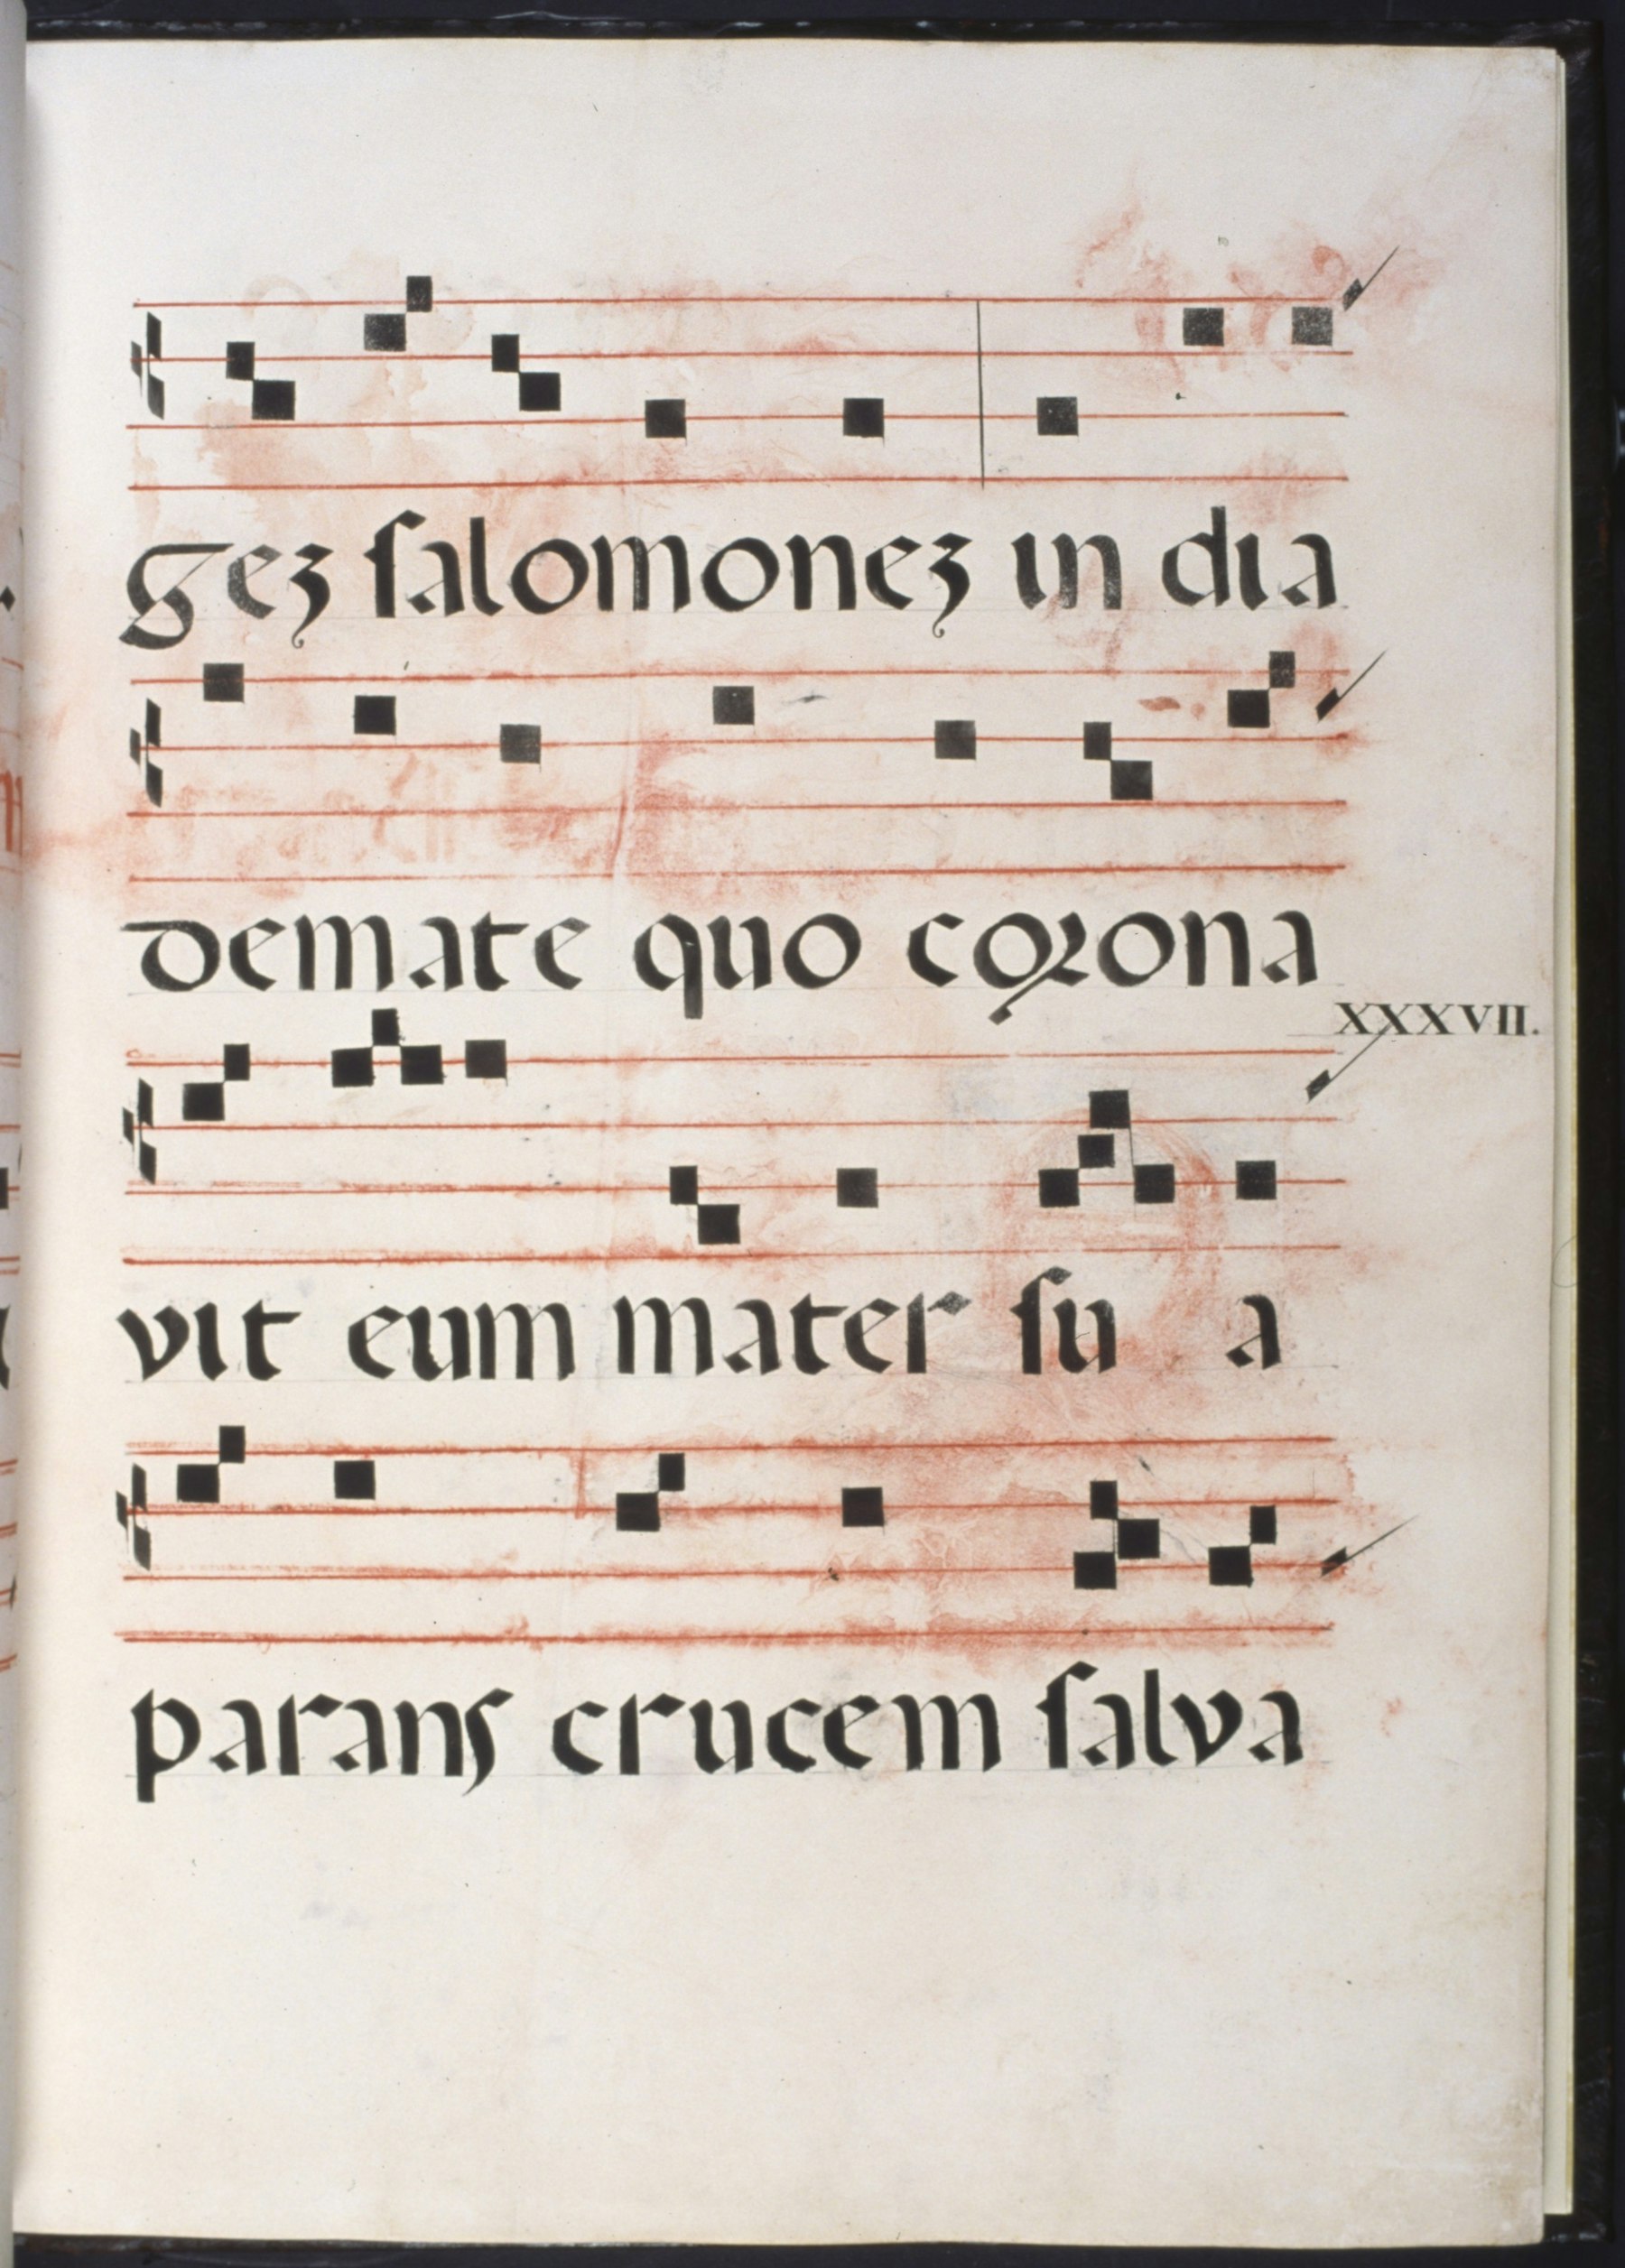 geʒ ſalomoneʒ in dia
demate quo coꝛona
XXXVII.
vit eum mater ſu a
parans crucem ſalva